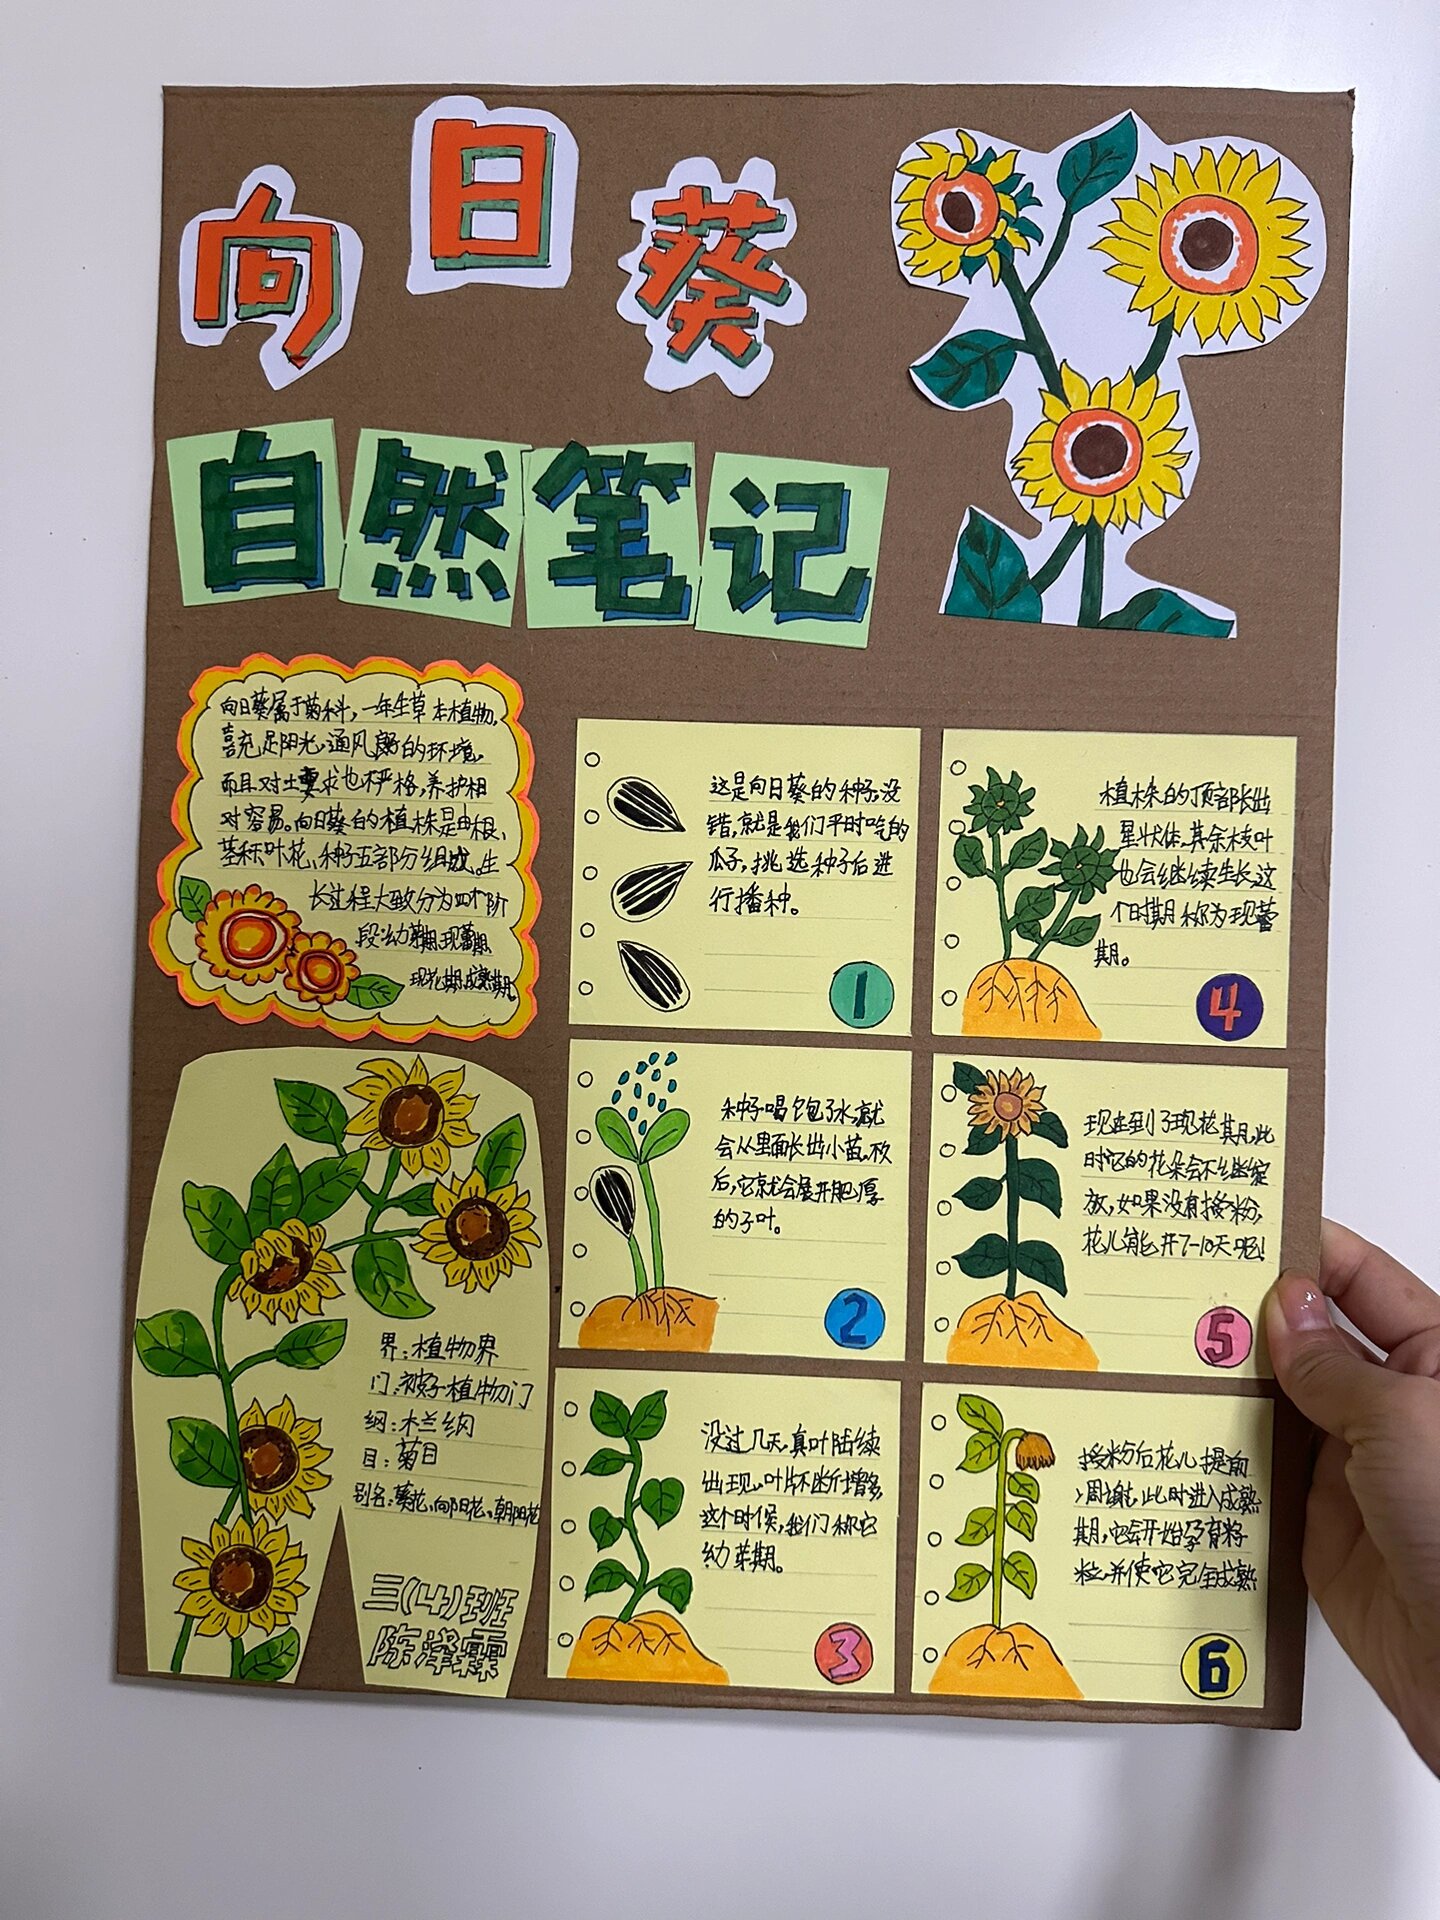 向日葵
自然笔记
向日葵属于菊科，一年生草本植物，
喜充足阳光、通风良好的环境，
而且对土要求也不严格，养护相
对容易。向日葵的植株是由根、
茎秆、叶花、种子五部分组成。生
长过程大致分为四个阶
段：幼芽期、现蕾期
现花期、成熟期。
界：植物界
门：被子植物门
纲：木兰纲
目：菊目
别名：葵花、向阳花、朝阳花
三(4)班
陈泽霖
这是向日葵的种子，没
错，就是我们平时吃的
瓜子，挑选种子后进
行播种。
1
种子喝饱了水，就
会从里面长出小苗。
后，它就会展开肥厚
的子叶。
2
没过几天，真叶陆续
出现。叶片不断增多，
这个时候，我们称它
幼芽期。
3
植株的顶部长出
星状体，其余枝叶
也会继续生长，这
个时期称为现蕾
期。
4
现在到了现花期，此
时它的花朵会不继绽
放，如果没有授粉，
花儿能开7-10天呢！
5
授粉后花儿提前
凋谢，此时进入成熟
期，它会开始孕育籽
粒，并使它完全成熟
6